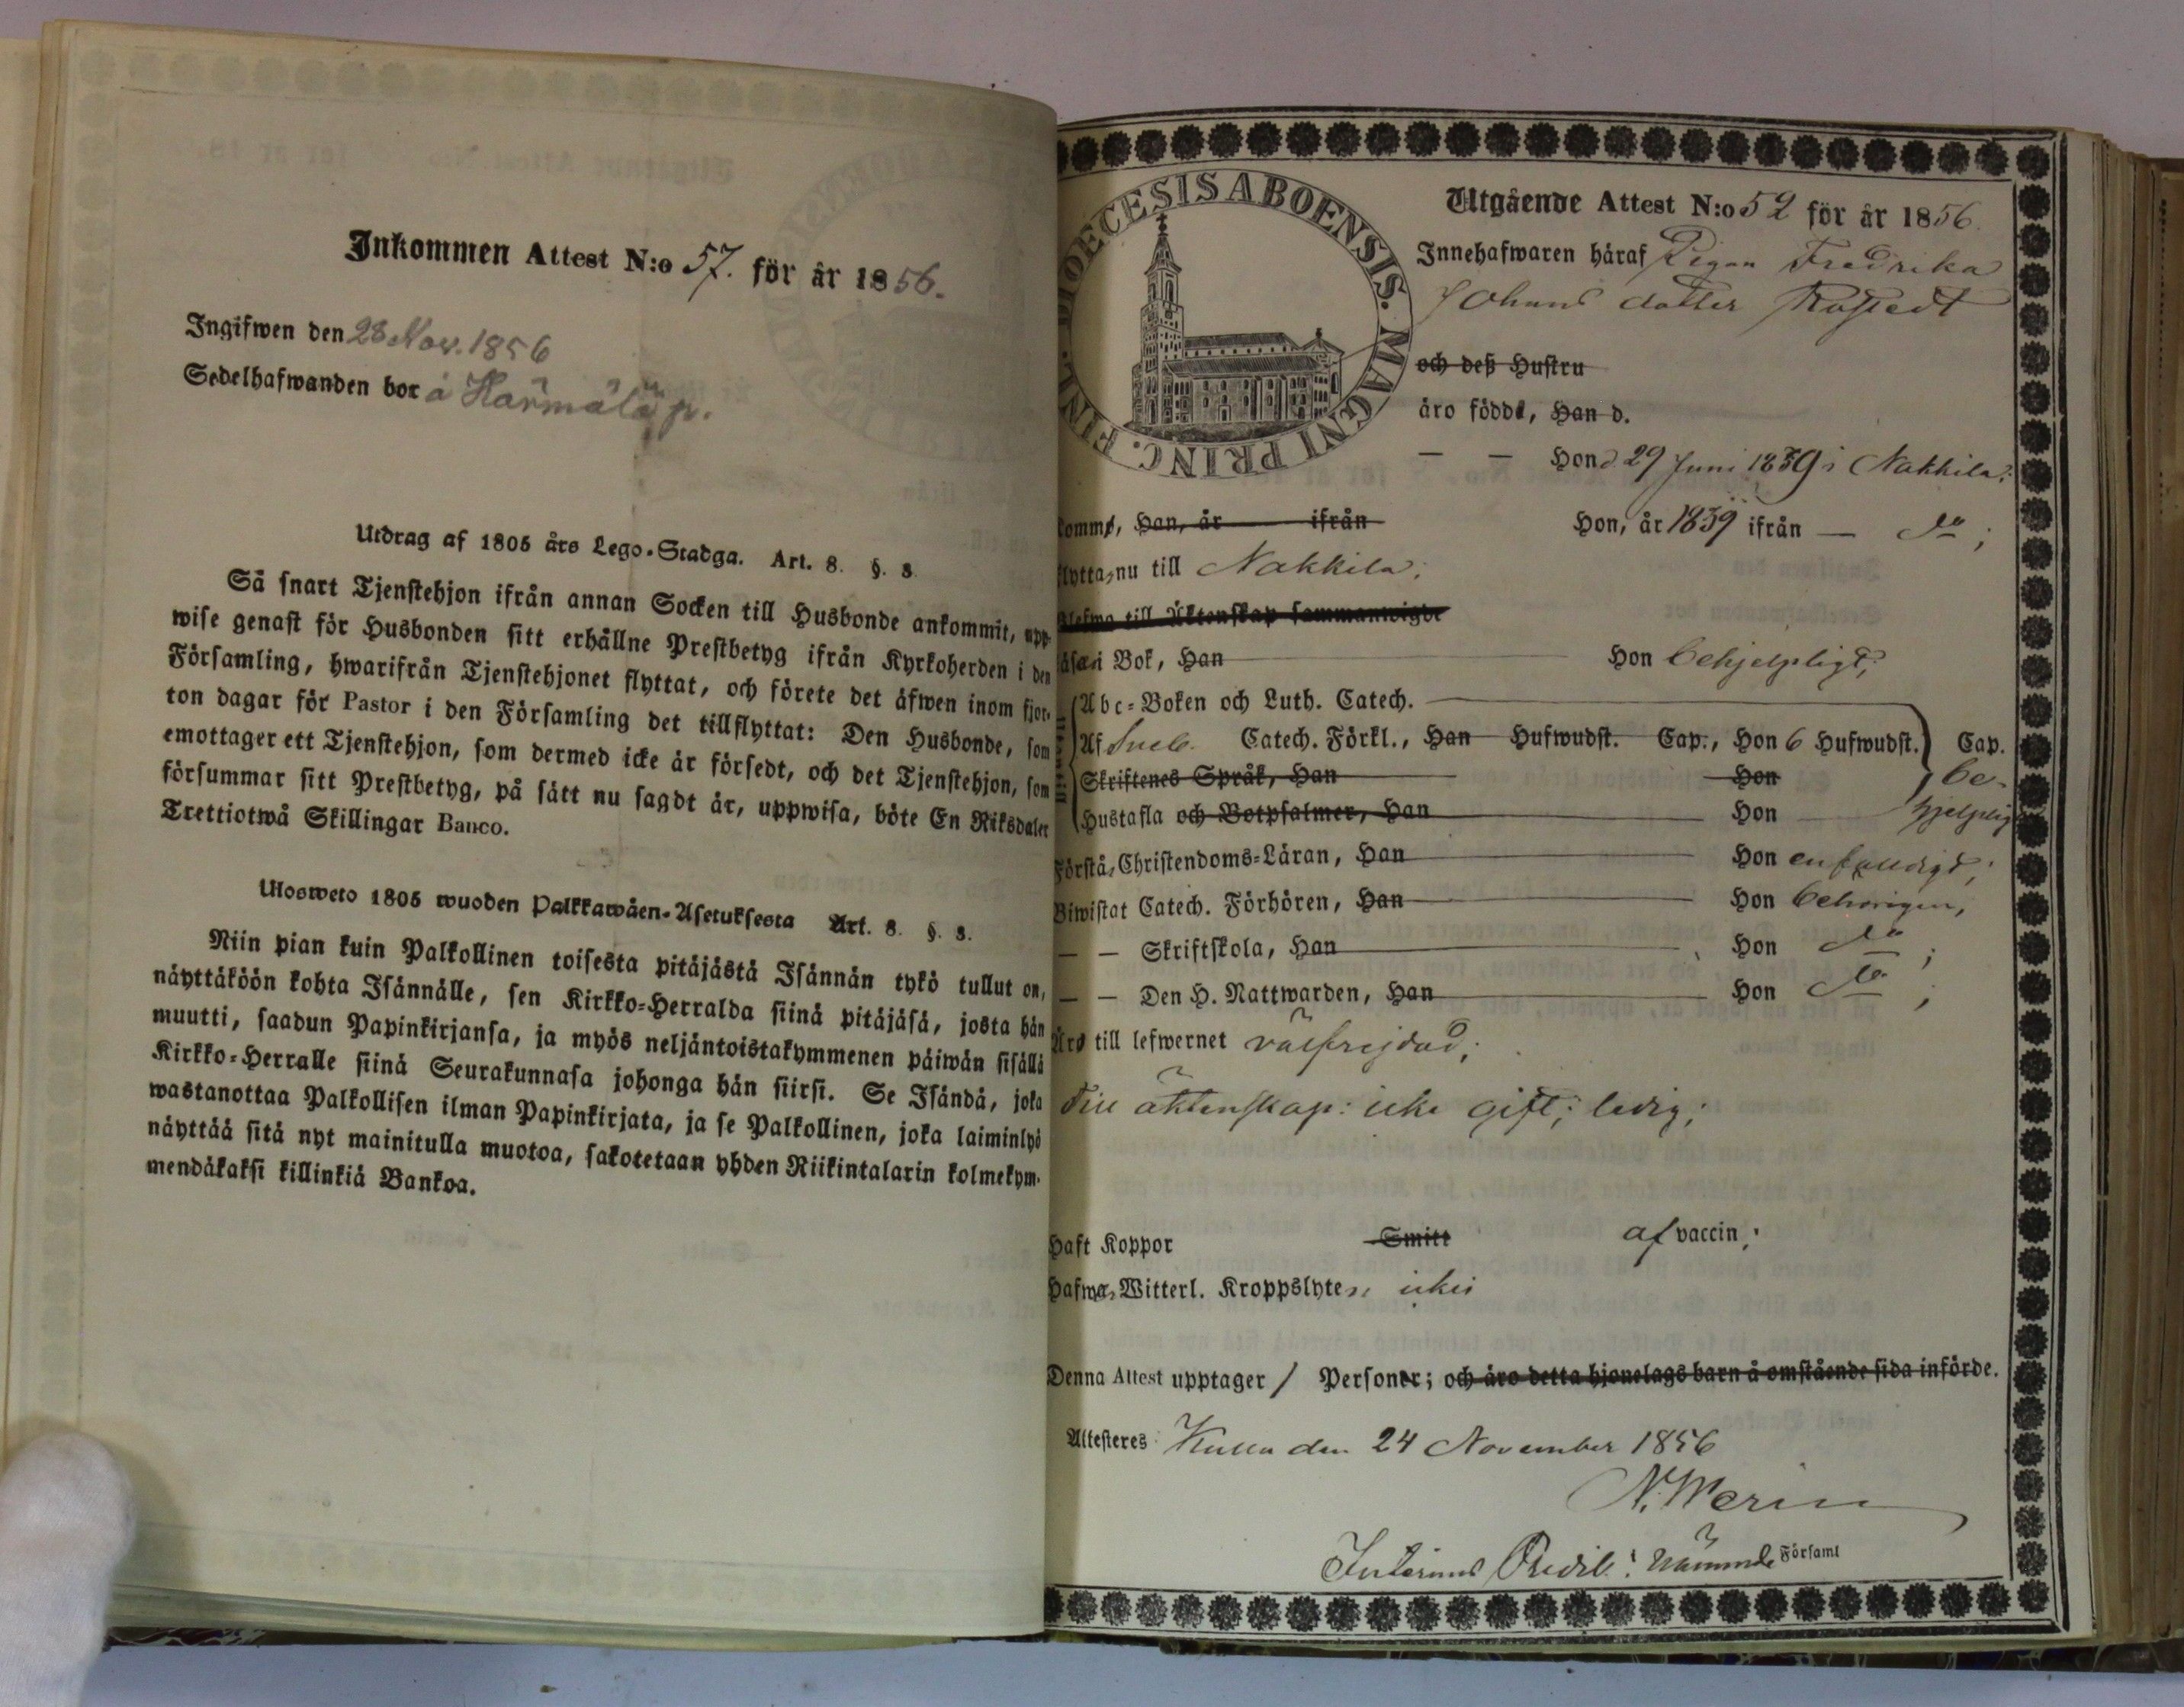 Inkommen Attest N:o 57. för år 1856.
Ingifwen den 28 Nov. 1856
Sedelhafwanden bor å Härmälä p.
Utdrag af 1805 års Lego-Stadga. Art. 8. §. 3.
Så snart Tjenstehjon ifrån annan Socken till Husbonde ankommit, upp-
wise genast för Husbonden sitt erhållne Prestbetyg ifrån Kyrkoherden i den
Församling, hwarifrån Tjenstehjonet flyttat, och förete det äfwen inom fjor-
ton dagar för Pastor i den Församling det tillflyttat: Den Husbonde, som
emottager ett Tjenstehjon, som dermed icke är försedt, och det Tjenstehjon, som
försummar sitt Prestbetyg, på sätt nu sagdt är, uppwisa, böte En Riksdaler
Trettiotwå Skillingar Banco.
Ulosweto 1805 wuoden Palkkawäen-Asetuksesta Art. 8. §. 3.
Niin pian kuin Palkollinen toisesta pitäjästä Isännän tykö tullut on,
näyttäköön kohta Isännälle, sen Kirkko-Herralda siinä pitäjäsä, josta hän
muutti, saadun Papinkirjansa, ja myös neljäntoistakymmenen päiwän sisällä
Kirkko-Herralle siinä Seurakunnasa johonga hän siirsi. Se Isändä, joka
wastanottaa Palkollisen ilman Papinkirjata, ja se Palkollinen, joka laiminlyö
näyttää sitä nyt mainitulla muotoa, sakotetaan yhden Riikintalarin kolmekym-
mendäkaksi killinkiä Bankoa.
DIOECESIS ABOENSIS. MAGNI PRINC. FINL.
Utgående Attest N:o 52 för år 1856.
Innehafwaren häraf Pigan Fredrika
Johans dotter
och deß Hustru
äro födde, Han d.
— — Hon d. 29 Juni 1839 i Nakkila;
komme, Han, år ifrån Hon, år 1839 ifrån — do;
flytta, nu till Nakkila;
till Äktenskap sammanwigde
läsa i Bok, Han Hon behjelpligt;
Abc-Boken och Luth. Catech.
Af Sveb. Catech. Förkl., Han Hufwudst. Cap., Hon 6 Hufwudst. Cap.
Skriftenes Språk, Han Hon be-
Hustafla och Botpsalmer, Han Hon hjelplig
Förstå, Christendoms-Läran, Han Hon enfalldigt;
Biwistat Catech. Förhören, Han Hon behörigen,
— — Skriftskola, Han Hon do;
— — Den H. Nattwarden, Han Hon do;
Äro till lefwernet välfrejdad;
Till äktenskap: icke gift; ledig;
Haft Koppor Smitt af vaccin;
Hafwa, Witterl. Kroppslyten
Denna Attest upptager 1 Personer; och äro detta hjonelags barn å omstående sida införde.
Attesteres Kulla den 24 November 1856
Församl